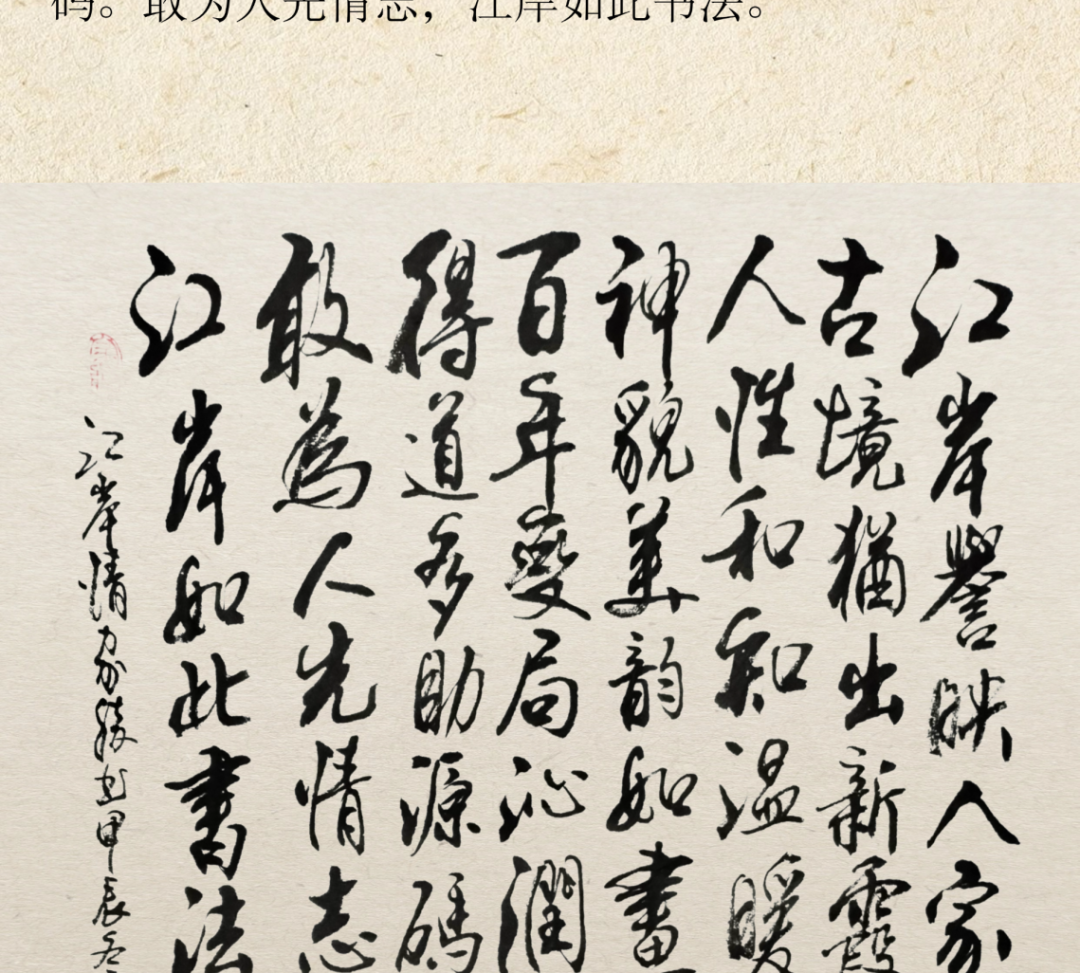 码。敢为人先情志，江岸如此书法。
江岸譽映人家
古境猶出新霞
人性和和温暖
神貌美韵如畫
百年變局沁潤
得道多助源碼
敢為人先情志
江岸如此書法
江岸情
甲辰冬